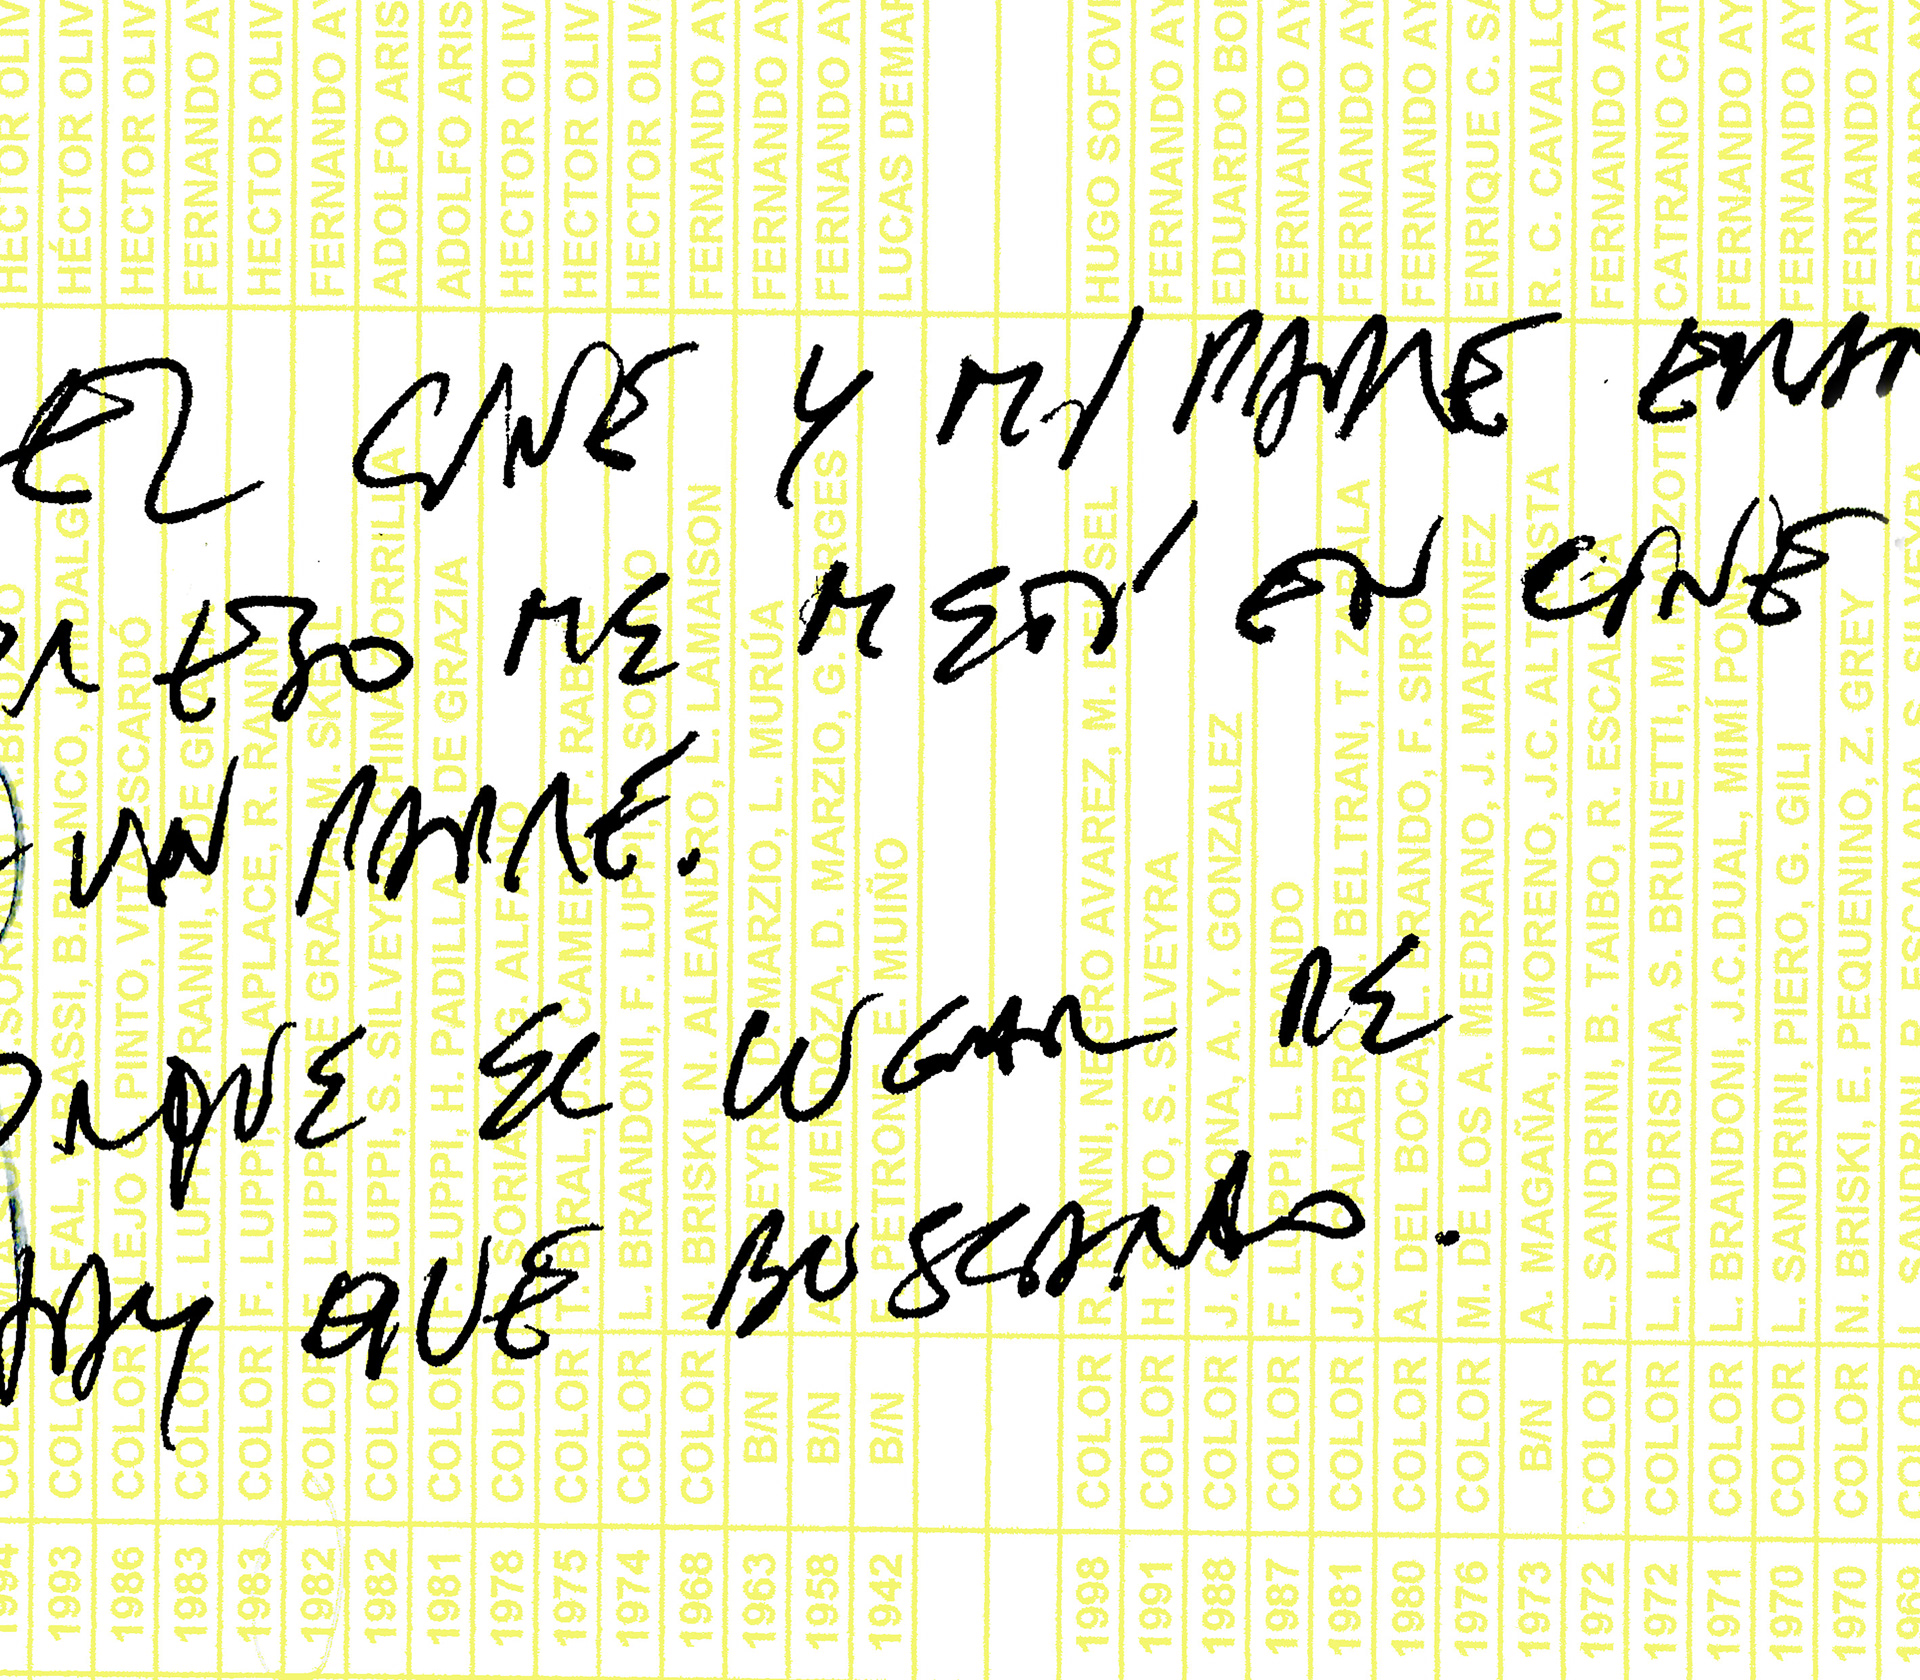 EL CINE Y MI PADRE ERAN
ESO ME METÍ EN CINE
UN PADRE.
PORQUE EL LUGAR DE
HAY QUE BUSCARLO.
HÉCTOR OLIV
HECTOR OLIV
FERNANDO AY
HECTOR OLIV
FERNANDO AY
ADOLFO ARIS
ADOLFO ARIS
HECTOR OLIV
HECTOR OLIV
HECTOR OLIV
FERNANDO AY
FERNANDO AY
FERNANDO AY
LUCAS DEMAR
HUGO SOFOVI
FERNANDO AY
EDUARDO BO
FERNANDO AY
FERNANDO AY
FERNANDO AY
ENRIQUE C. SA
R. C. CAVALLO
FERNANDO AY
CATRANO CAT
FERNANDO AY
FERNANDO AY
FERNANDO AY
COLOR 1993
COLOR 1986
COLOR F. LUPPI 1983
COLOR F. LUPPI, APLACE, R. RANNI 1983
COLOR LUPPI DE GRAZIA, M. 1982
COLOR LUPPI, S. SILVEY 1982
COLOR F. LUPPI, H. PADILLA DE GRAZIA 1981
COLOR G. ALFARO 1978
COLOR 1975
COLOR L. BRANDONI, F. LUPPI, SO 1974
COLOR N. BRISKI, N. ALEANDRO, L. LAMAISON 1968
B/N D. MARZIO, L. MURÚA 1963
B/N A. DE MENDOZA, D. MARZIO, G. BORGES 1958
B/N F. PETRONE, E. MUIÑO 1942
COLOR R. RANNI, NEGRO AVAREZ, M. DEL SEL 1998
COLOR H. SOTO, S. SILVEYRA 1991
COLOR J. A. Y. GONZALEZ 1988
COLOR F. LUPPI, L. BRANDO 1987
COLOR J.C. CALABRO, N. BELTRAN, T. ZARALA 1981
COLOR A. DEL BOCA, L. BRANDO, F. SIRO 1980
COLOR M. DE LOS A. MEDRANO, J. MARTINEZ 1976
B/N A. MAGAÑA, I. MORENO, J.C. ALTAVISTA 1973
COLOR L. SANDRINI, B. TAIBO, R. ESCALADA 1972
COLOR L. LANDRISINA, S. BRUNETTI, M. ANZOTTI 1972
COLOR L. BRANDONI, J.C.DUAL, MIMÍ PONS 1971
COLOR L. SANDRINI, PIERO, G. GILI 1970
COLOR N. BRISKI, E. PEQUENINO, Z. GREY 1970
1969